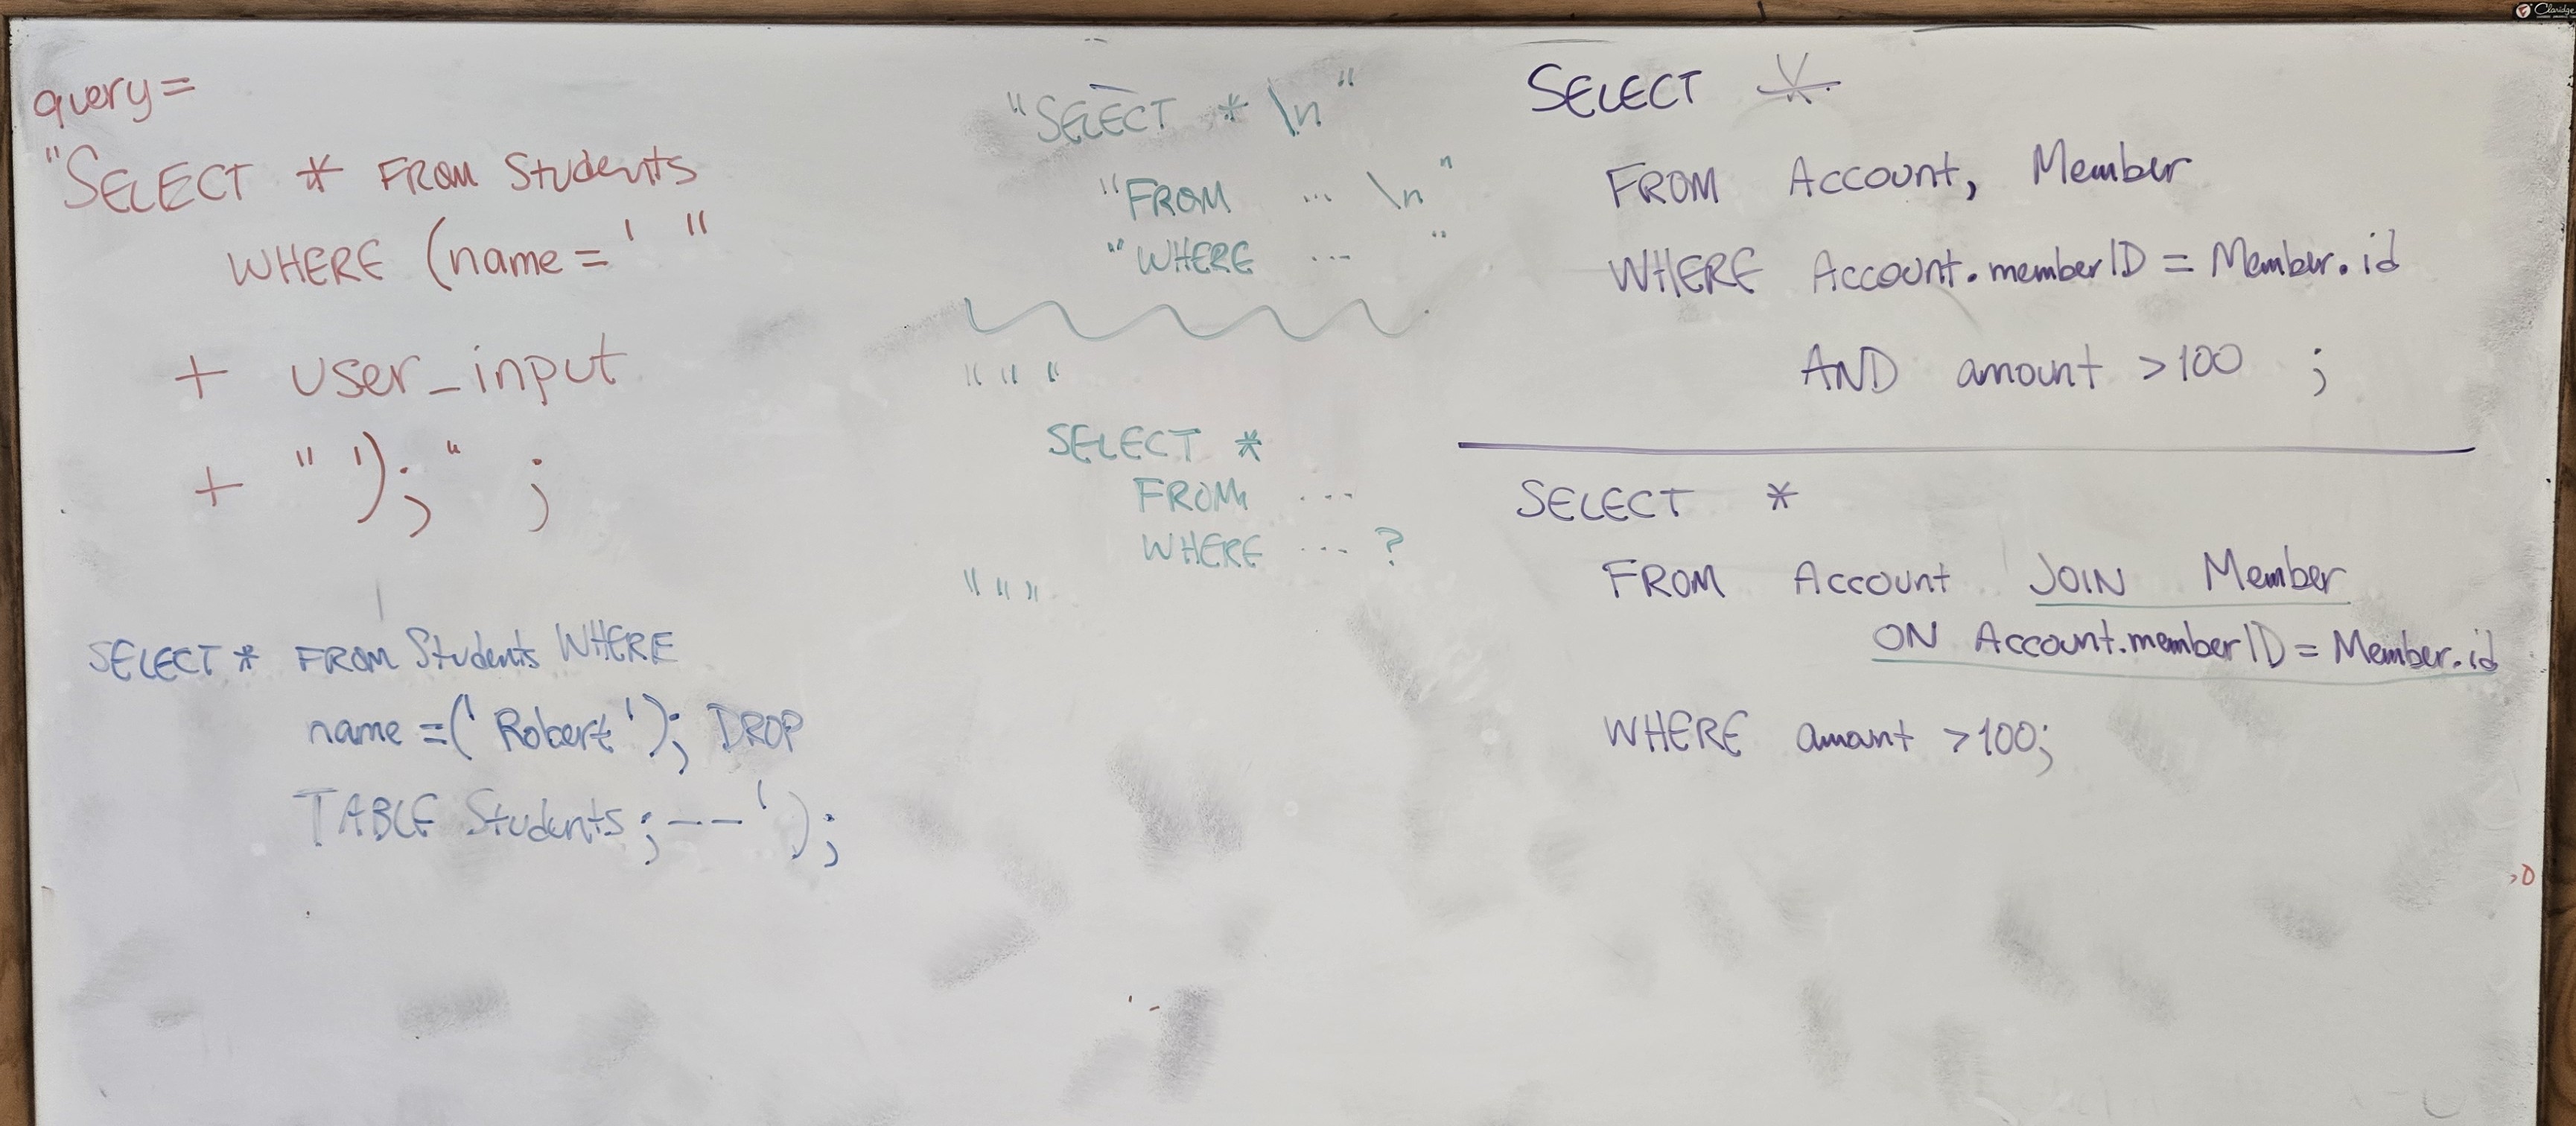 query=
"SELECT * FROM Students
WHERE (name=' "
+ user_input
+ " '); " ;
SELECT * FROM Students WHERE
name =(' Robert '); DROP
TABLE Students ; -- ' );
"SELECT * \n"
"FROM ... \n"
"WHERE ... "
" " "
SELECT *
FROM ...
WHERE ... ?
" " "
SELECT *
FROM Account, Member
WHERE Account.memberID = Member.id
AND amount >100 ;
SELECT *
FROM Account JOIN Member
ON Account.memberID = Member.id
WHERE amount >100;
Claridge